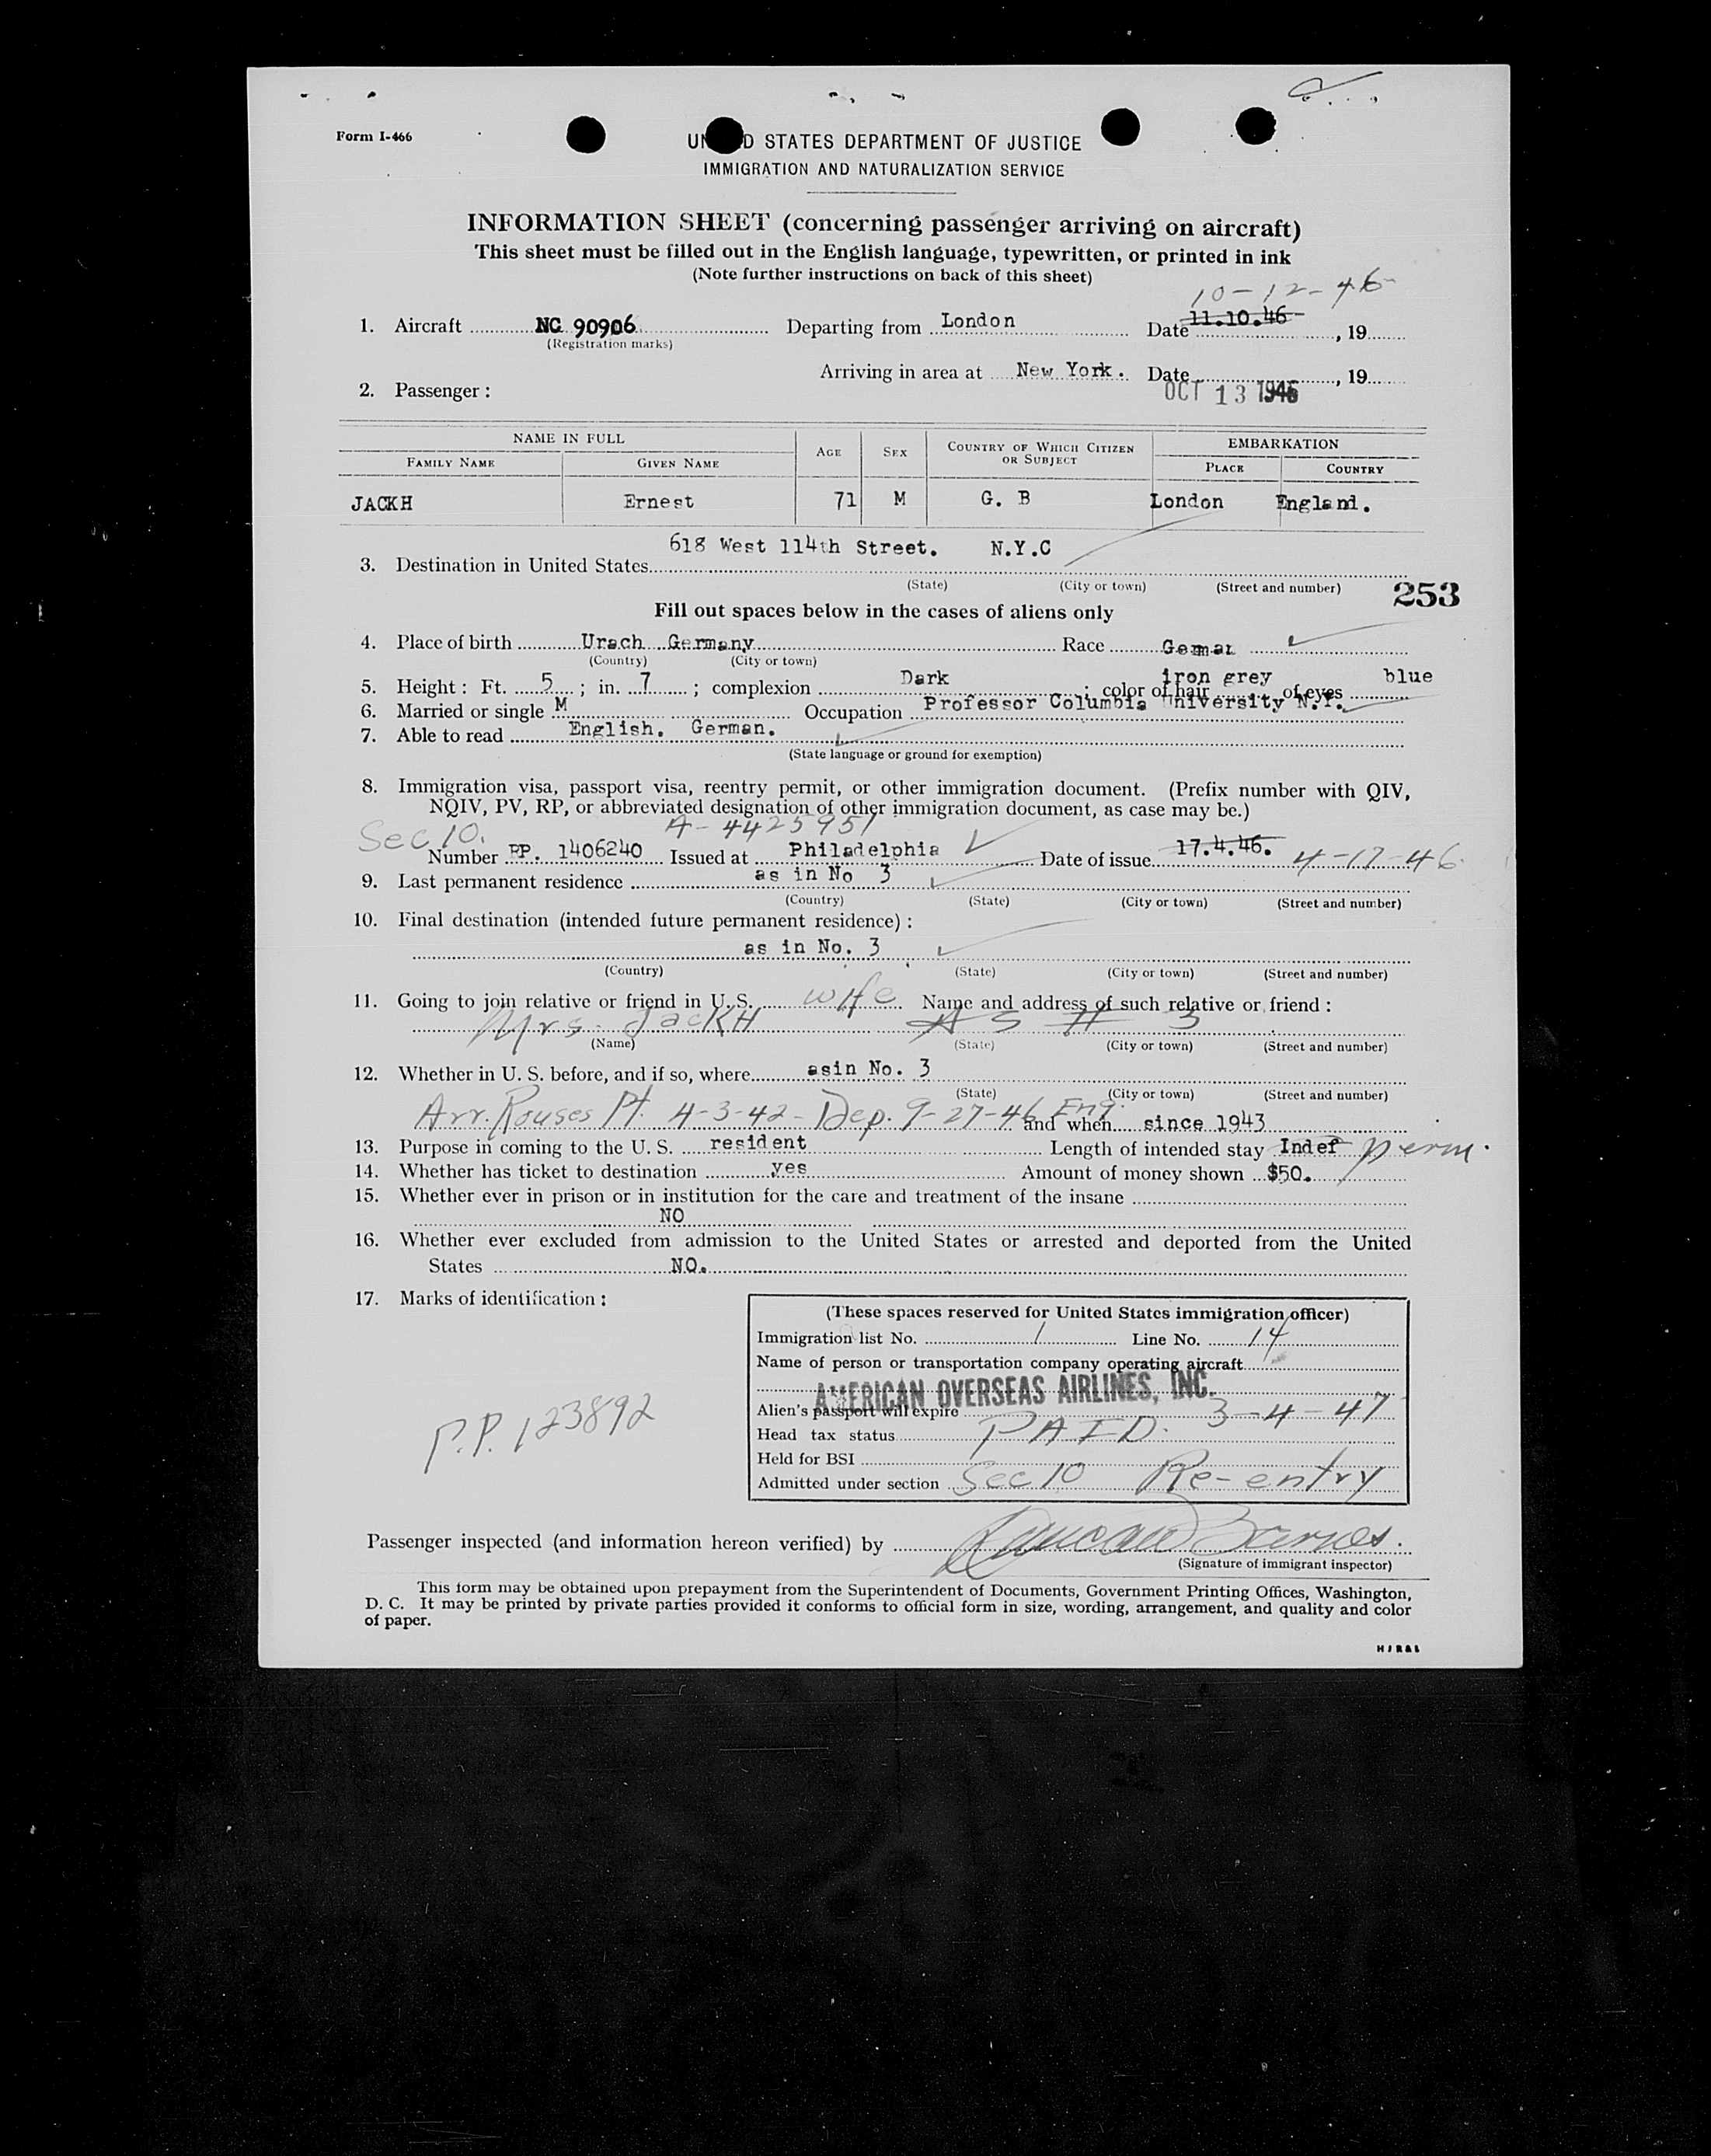 Form I-466
UN D STATES DEPARTMENT OF JUSTICE
IMMIGRATION AND NATURALIZATION SERVICE
INFORMATION SHEET (concerning passenger arriving on aircraft)
This sheet must be filled out in the English language, typewritten, or printed in ink
(Note further instructions on back of this sheet)
10-12-46
1. Aircraft NC 90906 Departing from London Date 11.10.46 , 19
(Registration marks)
Arriving in area at New York. Date OCT 13 1946 , 19
2. Passenger:
NAME IN FULL AGE SEX COUNTRY OF WHICH CITIZEN OR SUBJECT EMBARKATION
FAMILY NAME GIVEN NAME PLACE COUNTRY
JACKH Ernest 71 M G. B London England.
618 West 114th Street. N.Y.C
3. Destination in United States
(State) (City or town) (Street and number) 253
Fill out spaces below in the cases of aliens only
4. Place of birth Urach Germany Race Geman
(Country) (City or town)
5. Height: Ft. 5 ; in. 7 ; complexion Dark ; color of hair iron grey of eyes blue
6. Married or single M Occupation Professor Columbia University N.Y.
7. Able to read English. German.
(State language or ground for exemption)
8. Immigration visa, passport visa, reentry permit, or other immigration document. (Prefix number with QIV,
NQIV, PV, RP, or abbreviated designation of other immigration document, as case may be.)
Sec 10. A-4425951
Number PP. 1406240 Issued at Philadelphia Date of issue 17.4.46. 4-17-46
9. Last permanent residence as in No 3
(Country) (State) (City or town) (Street and number)
10. Final destination (intended future permanent residence):
as in No. 3
(Country) (State) (City or town) (Street and number)
11. Going to join relative or friend in U.S. wife Name and address of such relative or friend:
Mrs. JackH AS # 3
(Name) (State) (City or town) (Street and number)
12. Whether in U. S. before, and if so, where asin No. 3
(State) (City or town) (Street and number)
Arr. Rouses Pt. 4-3-42- Dep. 9-27-46 Eng. and when since 1943
13. Purpose in coming to the U. S. resident Length of intended stay Indef perm.
14. Whether has ticket to destination yes Amount of money shown $50.
15. Whether ever in prison or in institution for the care and treatment of the insane
NO
16. Whether ever excluded from admission to the United States or arrested and deported from the United
States NO.
17. Marks of identification:
P.P. 123892
(These spaces reserved for United States immigration officer)
Immigration list No. 1 Line No. 14
Name of person or transportation company operating aircraft
AMERICAN OVERSEAS AIRLINES, INC.
Alien's passport will expire 3-4-47
Head tax status PAID.
Held for BSI
Admitted under section Sec 10 Re-entry
Passenger inspected (and information hereon verified) by
(Signature of immigrant inspector)
This form may be obtained upon prepayment from the Superintendent of Documents, Government Printing Offices, Washington,
D. C. It may be printed by private parties provided it conforms to official form in size, wording, arrangement, and quality and color
of paper.